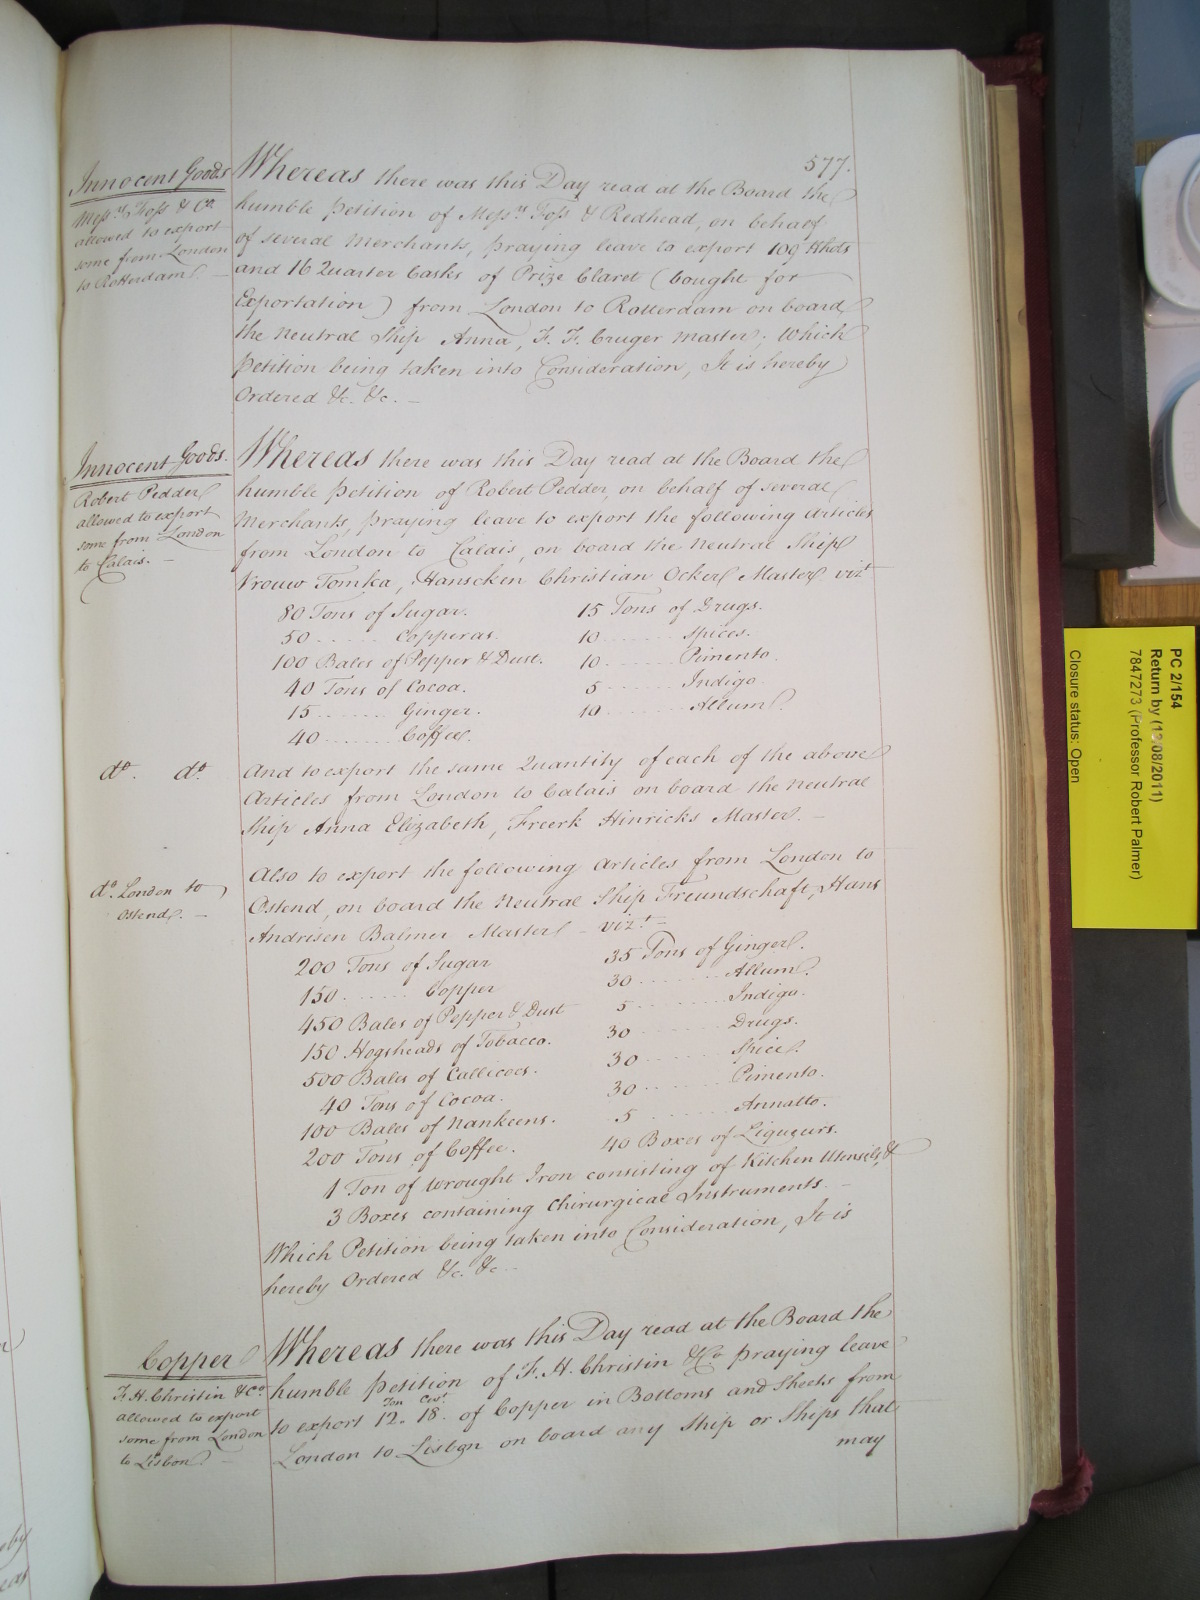 577.
Innocent Goods
Mess.rs Foss & Co.
allowed to export
some from London
to Rotterdam
Whereas there was this Day read at the Board the
humble Petition of Mess.rs Foss & Redhead, on behalf
of several Merchants, praying leave to export 109 Hhds
and 16 Quarter Casks of Prize Claret (bought for
Exportation) from London to Rotterdam on board
the Neutral Ship Anna, F. F. Cruger Master; Which
Petition being taken into Consideration, It is hereby
Ordered &c. &c. —
Innocent Goods.
Robert Pedder
allowed to export
some from London
to Calais. —
Whereas there was this Day read at the Board the
humble Petition of Robert Pedder, on behalf of several
Merchants, praying leave to export the following Articles
from London to Calais, on board the Neutral Ship
Vrouw Tomka, Hanscken Christian Ocker Master vizt
80 Tons of Sugar. 15 Tons of Drugs.
50 ...... Copperas. 10 ...... Spices.
100 Bales of Pepper & Dust. 10 ...... Pimento.
40 Tons of Cocoa. 5 ...... Indigo.
15 ...... Ginger. 10 ...... Allum.
40 ...... Coffee.
do. do.
And to export the same Quantity of each of the above
Articles from London to Calais on board the Neutral
Ship Anna Elizabeth, Freerk Hinricks Master. —
do. London to
Ostend. —
Also to export the following Articles from London to
Ostend, on board the Neutral Ship Freundschaft, Hans
Andrisen Balmer Master — vizt —
200 Tons of Sugar 35 Tons of Ginger.
150 ...... Copper 30 ...... Allum.
450 Bales of Pepper & Dust 5 ...... Indigo.
150 Hogsheads of Tobacco. 30 ...... Drugs.
500 Bales of Callicoes. 30 ...... Spice.
40 Tons of Cocoa. 30 ...... Pimento.
100 Bales of Nankeens. 5 ...... Annatto.
200 Tons of Coffee. 40 Boxes of Liqueurs.
1 Ton of wrought Iron consisting of Kitchen Utensils, &
3 Boxes containing Chirurgical Instruments. —
Which Petition being taken into Consideration, It is
hereby Ordered &c. &c —
Copper
F. H. Christin & Co.
allowed to export
some from London
to Lisbon. —
Whereas there was this Day read at the Board the
humble Petition of F. H. Christin & Co praying leave
Ton Cwt
to export 12. 18. of Copper in Bottoms and Sheets from
London to Lisbon on board any Ship or Ships that
may
PC 2/154
Return by (12/08/2011)
7847273 (Professor Robert Palmer)
Closure status: Open